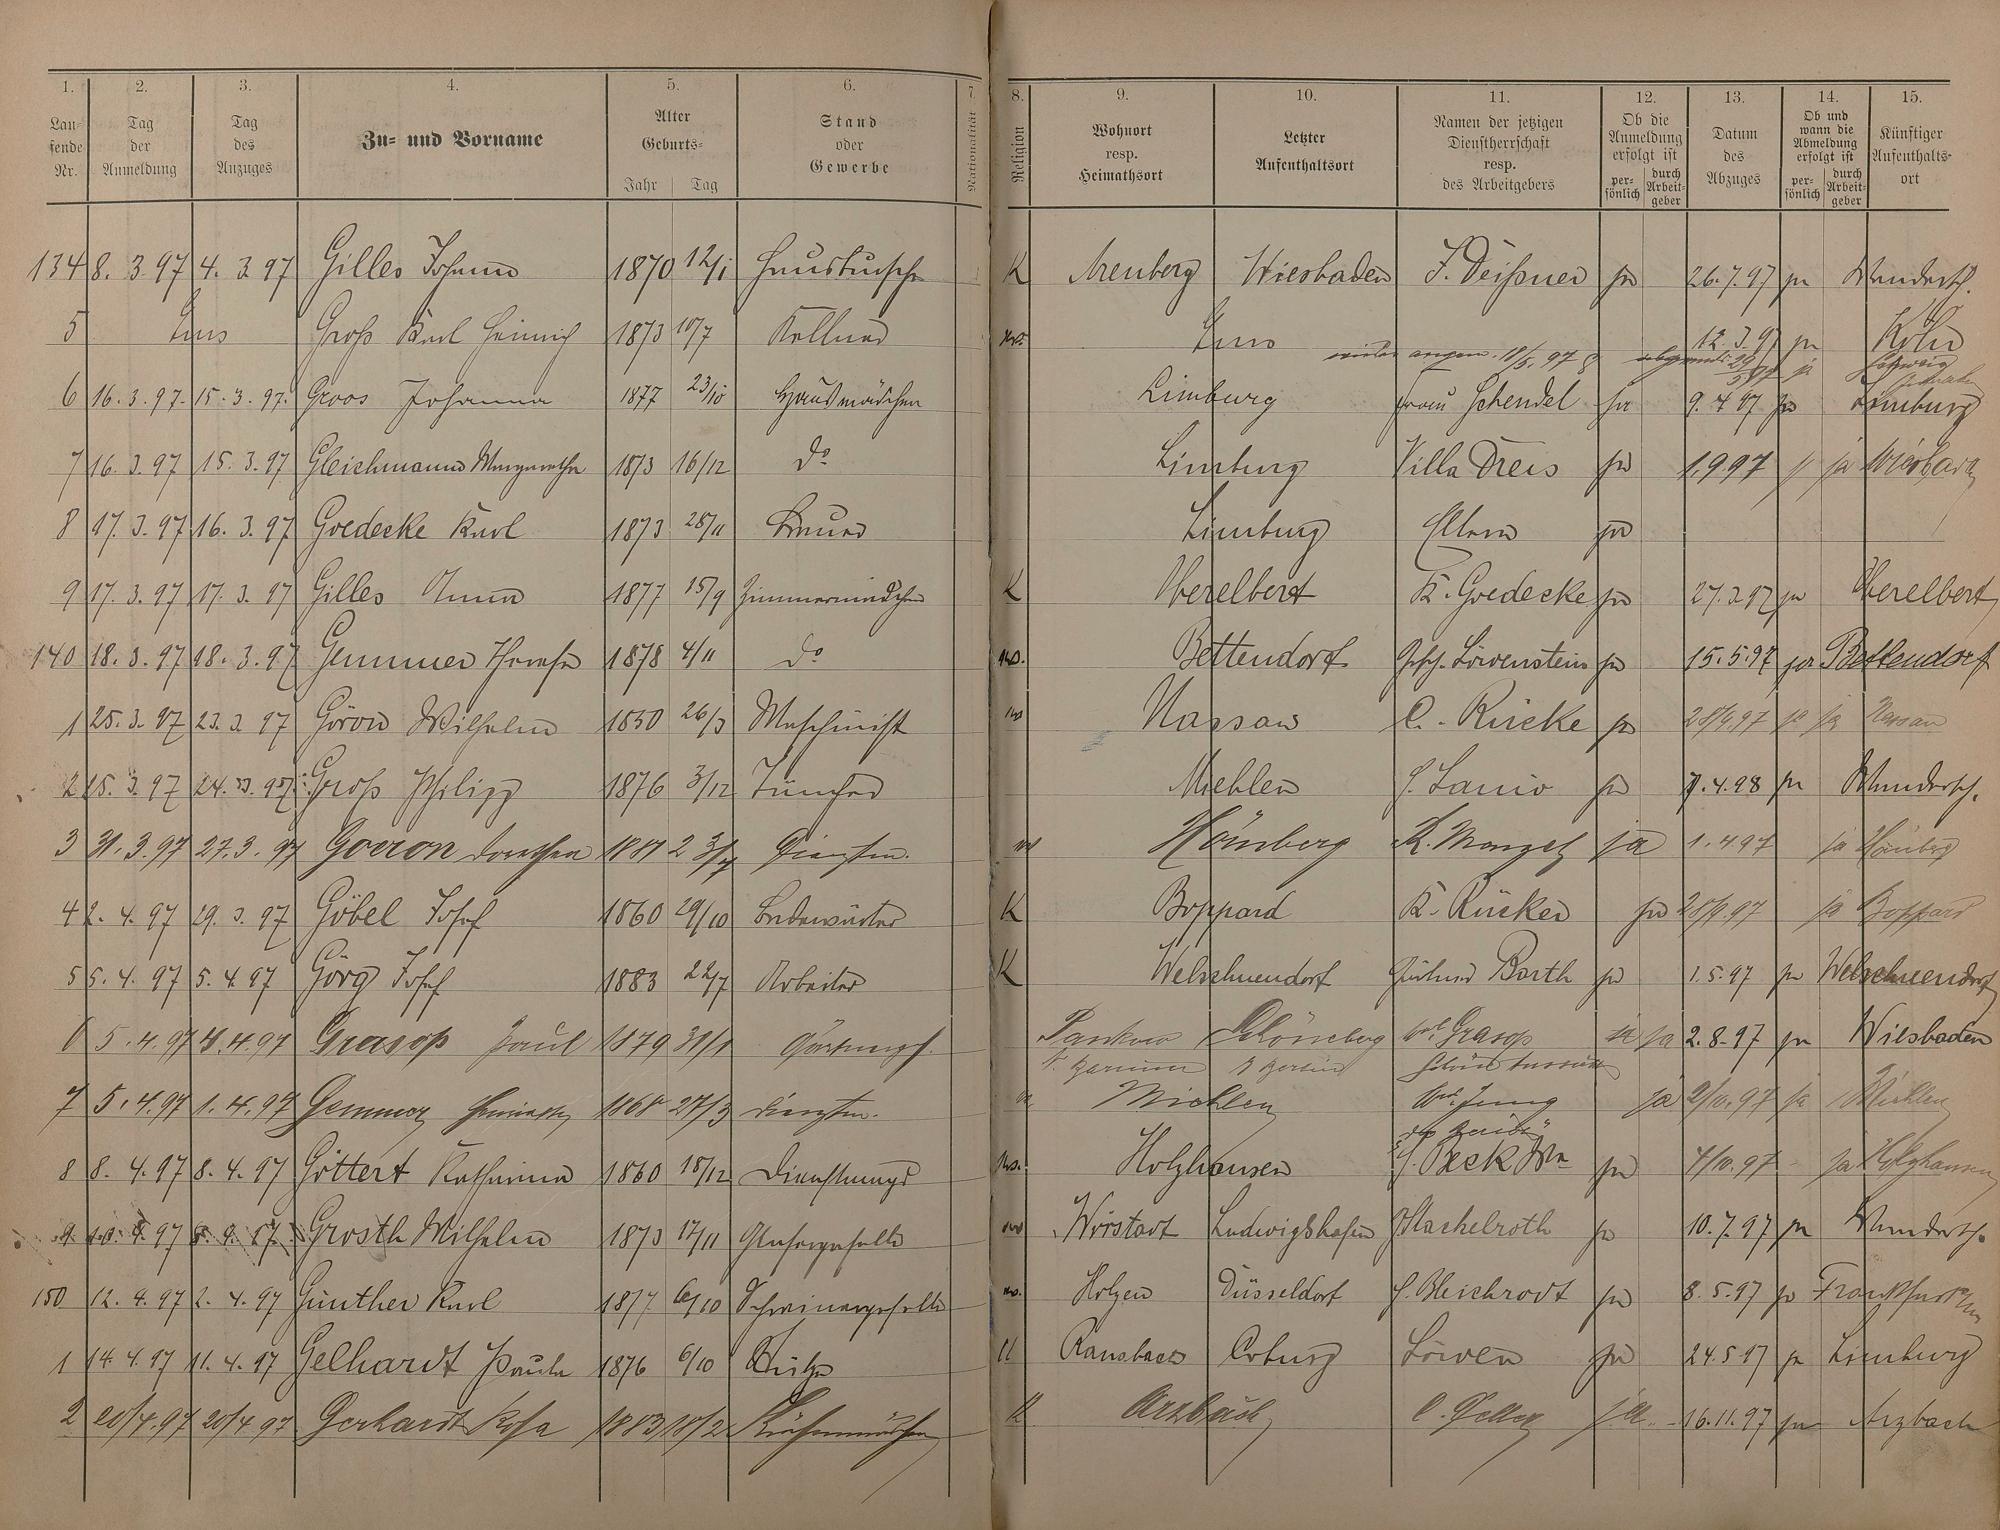 1. 2. 3. 4. 5. 6. 7. 8. 9. 10. 11. 12. 13. 14. 15.
Lau-fende Nr. Tag der Anmeldung Tag des Anzuges Zu- und Vorname Alter Geburts- Jahr Tag Stand oder Gewerbe Nationalität Religion Wohnort resp. Heimathsort Letzter Aufenthaltsort Namen der jetzigen Dienstherrschaft resp. des Arbeitgebers Ob die Anmeldung erfolgt ist per-sönlich durch Arbeit-geber Datum des Abzuges Ob und wann die Abmeldung erfolgt ist per-sönlich durch Arbeit-geber Künftiger Aufenthalts-ort
134 8. 3. 97 4. 3. 97 Gilles Johann 1870 12/1 Hausbursche K Arenberg Wiesbaden F. Deißner ja 26. 7. 97 ja Wandersch.
5 Ems Groß Karl Heinrich 1873 10/7 Kellner Ems 12. 3. 97 ja Köln
18/5. 97 ja
6 16. 3. 97. 15. 3. 97. Groos Johanna 1877 23/10 Hausmädchen Limburg Frau Schendel ja 9. 4 97 ja Limburg
7 16. 3. 97 15. 3. 97 Gleichmann Margarethe 1873 16/12 do Limburg Villa Dreis ja 1.9 97 ja Wiesbaden
8 17. 3. 97 16. 3. 97 Goedecke Karl 1873 28/11 Limburg Eltern ja
9 17. 3. 97 17. 3. 97 Gilles Anna 1877 15/9 Zimmermädchen K Oberelbert K. Goedecke ja 27. 3 97 ja Oberelbert
140 18. 3. 97 18. 3. 97 Gemmer Therese 1878 4/11 do Bettendorf Gesch. Löwenstein ja 15. 5. 97 ja Bettendorf
1 25. 3. 97 23. 3 97 Göron Wilhelm 1850 26/3 Maschinist Nassau C. Rücke ja 28/9. 97 ja ja Nassau
2 25. 3. 97 24. 3. 97. Groß Philipp 1876 3/12 Tüncher Miehlen ja 7. 4. 98 ja Wandersch.
3 31. 3. 97 27. 3. 97 Goeron Dorothea Dienstm. Hömberg ja 1. 4 97 ja Hömberg
4 2. 4. 97 29. 3. 97 Göbel Josef 1860 29/10 Badewärter K Boppard K. Rücker ja 28/9. 97 ja Boppard
5 5. 4. 97 5. 4. 97 Görg Josef 1883 22/7 Arbeiter K Welschneudorf Barth ja 1. 5. 97 ja Welschneudorf
6 5. 4. 97 4. 4. 97 Grasop Paul 1879 31/1 Pankow Schöneberg Grasop ja 2. 8. 97 ja Wiesbaden
7 5. 4. 97 1. 4. 97 Gemmer 1868 27/3 Dienstm. Miehlen Wwe Jung ja 2/10. 97 ja Miehlen
8 8. 4. 97 8. 4. 97 Göttert Katharina 1860 18/12 Dienstmagd Holzhausen Peck ja 4/10. 97 ja Holzhausen
9. 10. 4. 97 8. 4. 97. Grosth Wilhelm 1873 17/11 Glasergeselle Wörstadt Ludwigshafen Stachelroth ja 10. 7. 97 ja Wandersch.
150 12. 4. 97 2. 4. 97 Günther Karl 1877 6/10 Schreinergeselle Holzen Düsseldorf H. Bleichrodt ja 8. 5. 97 ja Frankfurt
1 14. 4. 97 11. 4. 97 Gelhardt Paula 1876 6/10 Ransbach Coburg Löwen ja 24. 5 97 ja Limburg
2 20/4. 97 20/4 97 Gerhardt Rosa 1883 18/2 Küchenmädchen K Arzbach ja 16. 11. 97 ja Arzbach